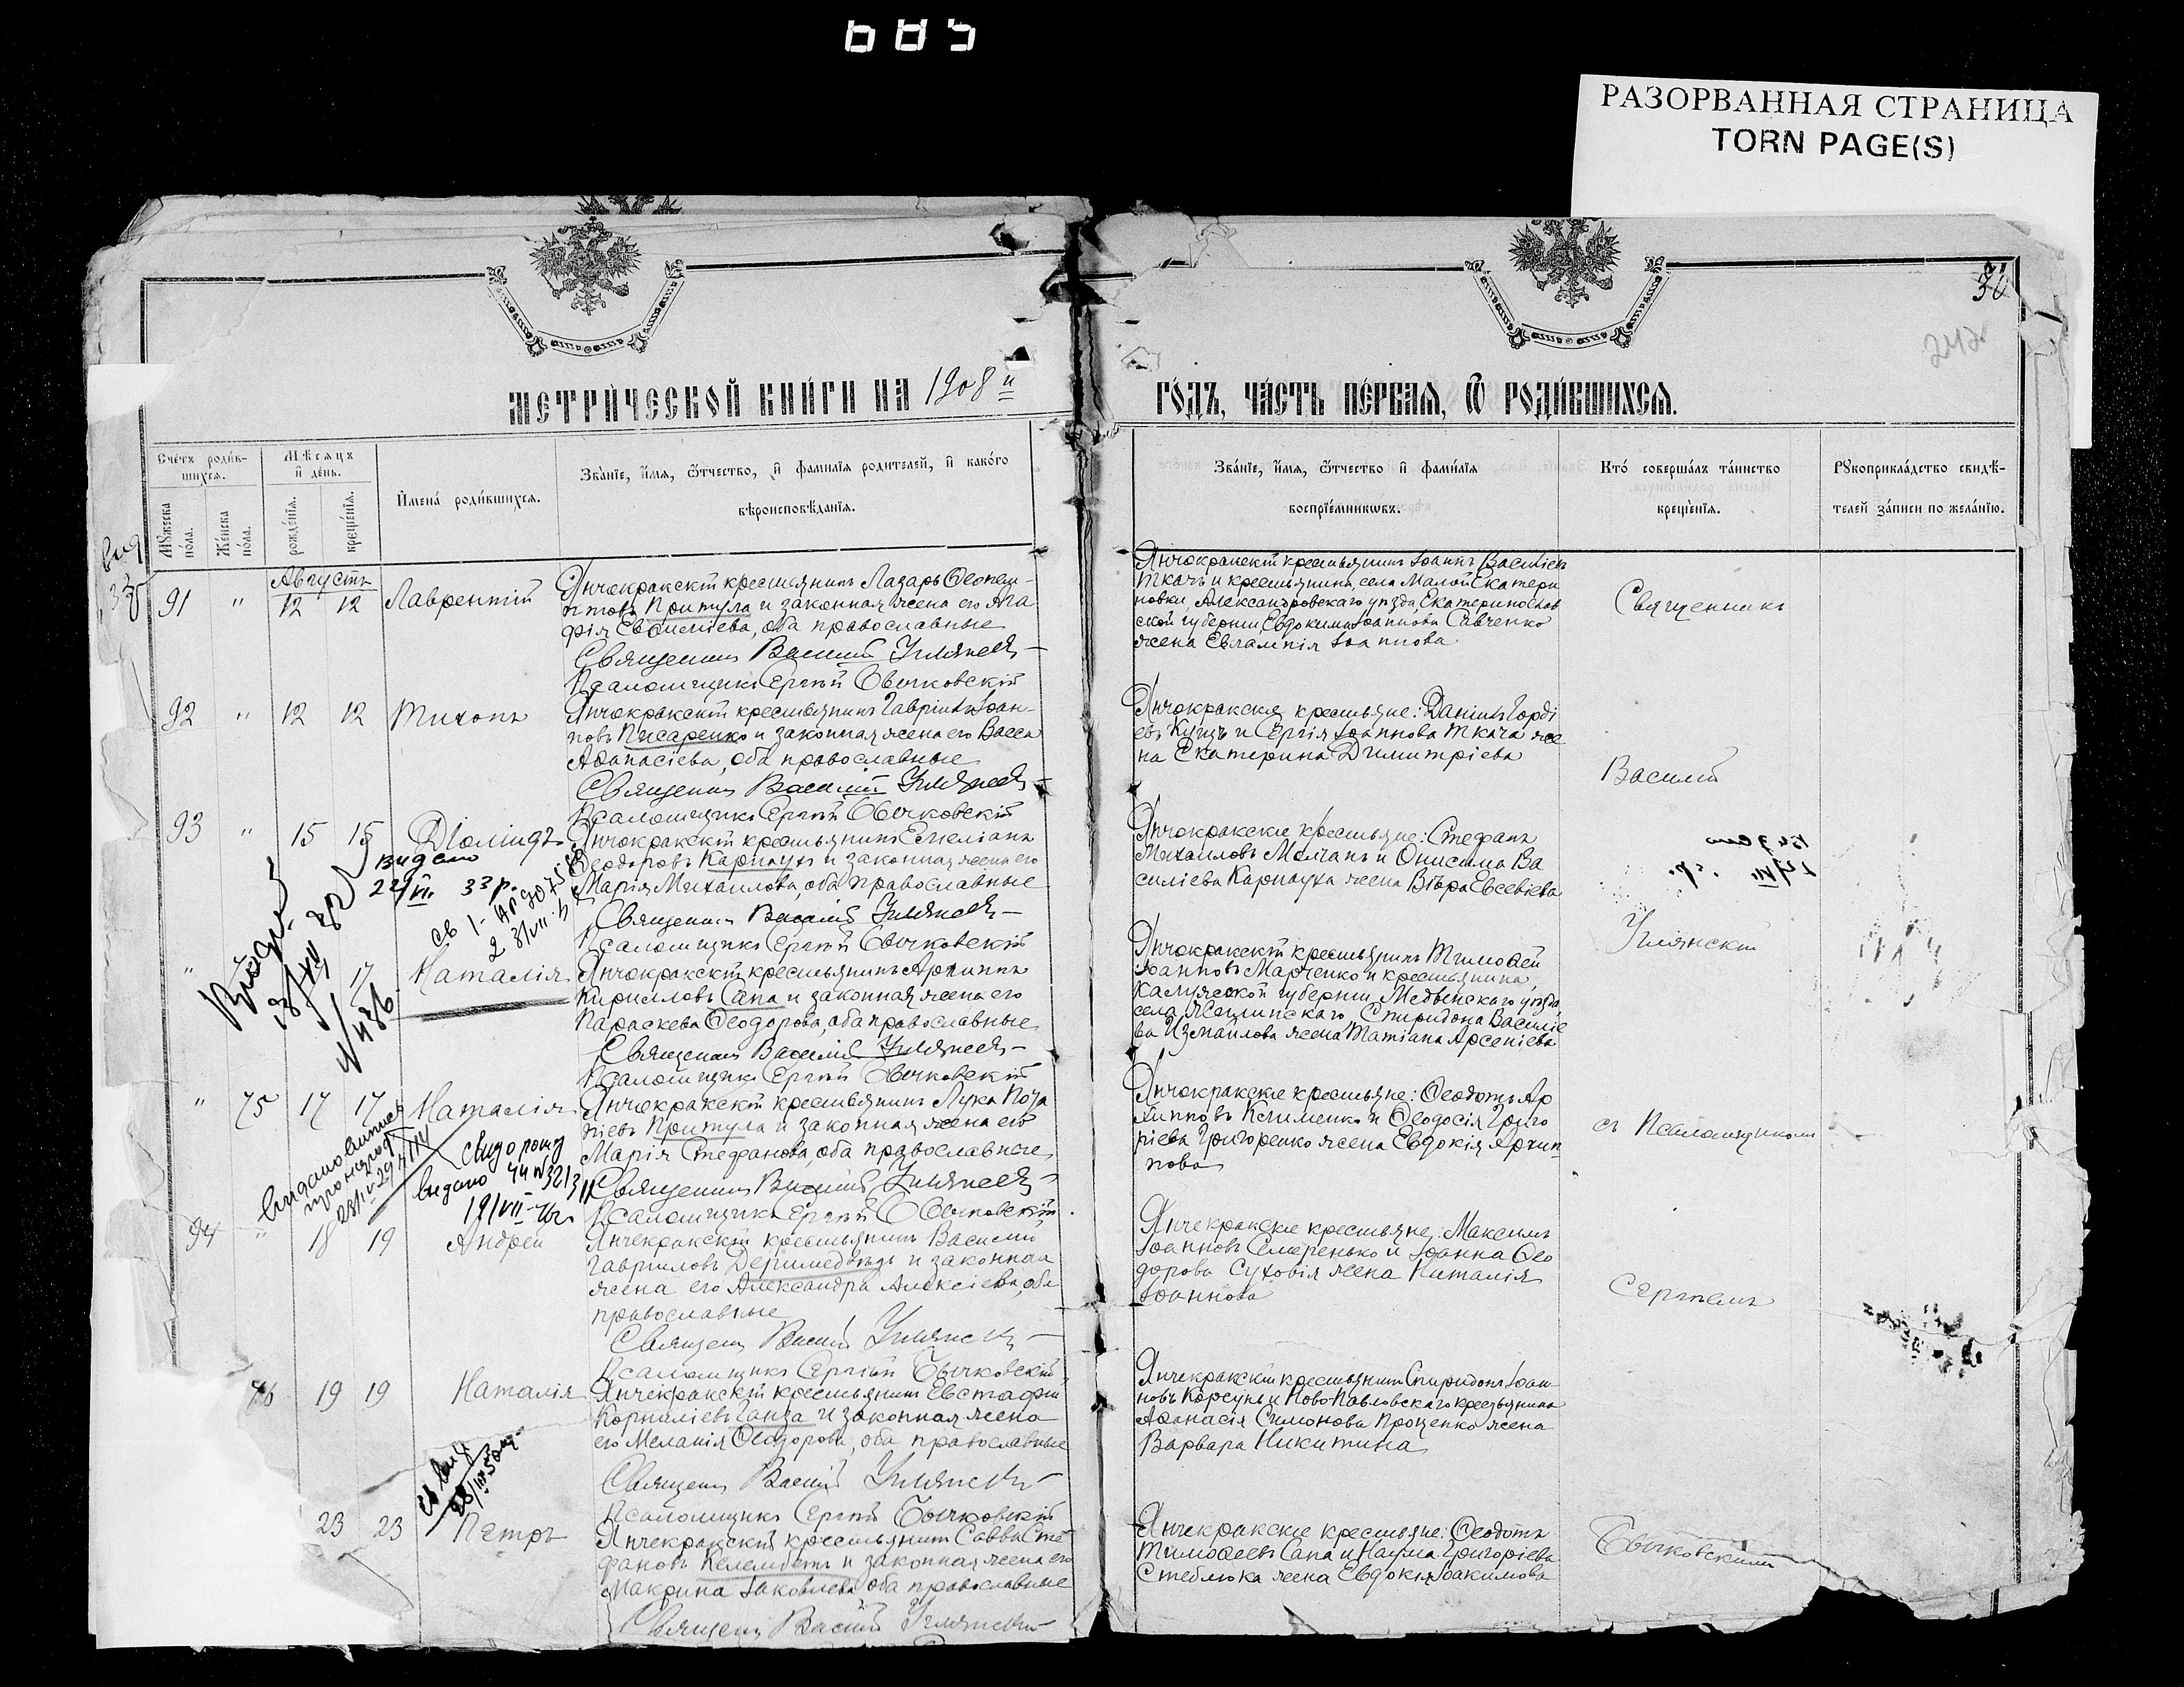 685
РАЗОРВАННАЯ СТРАНИЦА
TORN PAGE(S)
МЕТРИ́ЧЕСКОЙ КНИ́ГИ НА 1908 й
ГО́ДЪ, ЧА́СТЬ ПЕ́РВАЯ, Ѿ РОДИ́ВШИХСЯ.
242
Сче́тъ роди́в-
шихся.
Мѣ́сяцъ
и҆ де́нь.
Мꙋ́жеска
по́ла.
Же́нска
по́ла.
рожде́нїя.
креще́нїя.
И҆мена́ роди́вшихся.
Зва́нїе, и҆́мя, ѻ҆́тчество, и҆ фами́лїя роди́телей, и҆ како́го
вѣроисповѣ́данїя.
Зва́нїе, и҆́мя, ѻ҆́тчество и҆ фами́лїя
воспрїе́мникѡвъ.
Кто́ соверша́лъ та́инство
креще́нїя.
Рꙋкоприкла́дство свидѣ́-
телей за́писи по жела́нїю.
Августъ
91 " 12 12 Лаврентій
Янчокракскій крестьянинъ Лазарь Ѳеопем-
птовъ Притула и законная жена его Ага-
фія Евѳиміева, оба православные
Священникъ Василій Углянскій
Псаломщикъ Сергѣй Бычковскій
Янчокракскій крестьянинъ Іоаннъ Василіевъ
Ткачъ и крестьянина, села Малой Екатери
новки, Александровскаго уѣзда, Екатеринослав
ской губерніи, Евдокима Іоаннова Савченко
жена Евлампія Іоаннова
Священникъ
92 " 12 12 Тихонъ
Янчокракскій крестьянинъ Гавріилъ Іоан-
новъ Писаренко и законная жена его Васса
Аѳанасіева, оба православные
Священникъ Василій Углянскій
Псаломщикъ Сергѣй Бычковскій
Янчокракскіе крестьяне: Даніилъ Горді
евъ Куцъ и Сергія Іоаннова Ткача же
на Екатерина Димитріева
Василій
93 " 15 15 Діомидъ
Янчокракскій крестьянинъ Емеліанъ
Ѳеодоровъ Карпаухъ и законная жена его
Марія Михаилова, оба православные
Священникъ Василій Углянскій
Псаломщикъ Сергѣй Бычковскій
Янчокракскіе крестьяне: Стефанъ
Михаиловъ Молчанъ и Онисима Ва
силіева Карпауха жена Вѣра Евсевіева
видано
22/VII 33 р.
Углянскій
" 17 Наталія
Янчокракскій крестьянинъ Архиппъ
Кирилловъ Сапа и законная жена его
Параскева Ѳеодорова, оба православные
Священникъ Василій Углянскій
Псаломщикъ Сергѣй Бычковскій
Янчокракскій крестьянинъ Тимоѳей
Іоанновъ Марченко и крестьянина,
Калужской губерніи, Медынскаго уѣзда,
села Спиридона Василіе
ва Измаилова жена Татіана Арсеніева
" 75 17 17 Наталія
Янчокракскій крестьянинъ Лука
Притула и законная жена его
Марія Стефанова, оба православные
Священникъ Василій Углянскій
Псаломщикъ Сергѣй Бычковскій
Янчокракскіе крестьяне: Ѳеодотъ Ар
хипповъ Клименко и Ѳеодосія Григо
ріева Григоренко жена Евдокія Архип-
пова
съ Псаломщикомъ
видано
19/VII
94 " 18 19 Андрей
Янчекракскій крестьянинъ Василій
Гавриловъ Деримедвѣдь и законная
жена его Александра Алексіева, оба
православные
Священникъ Василій Углянскій
Псаломщикъ Сергѣй Бычковскій
Янчекракскіе крестьяне: Максимъ
Іоанновъ Смеренько и Іоанна Ѳео
дорова Суховія жена Наталія
Іоаннова
Сергѣемъ
76 19 19 Наталія
Янчекракскій крестьянинъ Евстафій
Корниліевъ Ганза и законная жена
его Меланія Ѳеодорова, оба православные
Священникъ Василій Углянскій
Псаломщикъ Сергѣй Бычковскій
Янчекракскій крестьянинъ Спиридонъ Іоан-
новъ Корсунь и Ново-Павловскаго крестьянина
Аѳанасія Симонова Проценко жена
Варвара Никитина
23 23 Петръ
Янчекракскій крестьянинъ Савва Сте
фановъ Келембетъ и законная жена его
Макрина Іаковлева, оба православные
Священникъ Василій Углянскій
Янчекракскіе крестьяне: Ѳеодотъ
Тимоѳеевъ Сапа и Наума Григоріева
Стеблюка жена Евдокія Іоакимова
Бычковскимъ